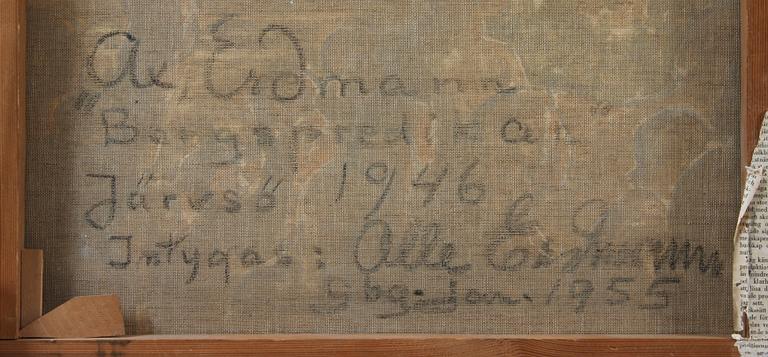 Ax, Erdmann
"Bergspredikan"
Järvsö 1946
Intygas: Olle Es
Gbg. Jan. 1955